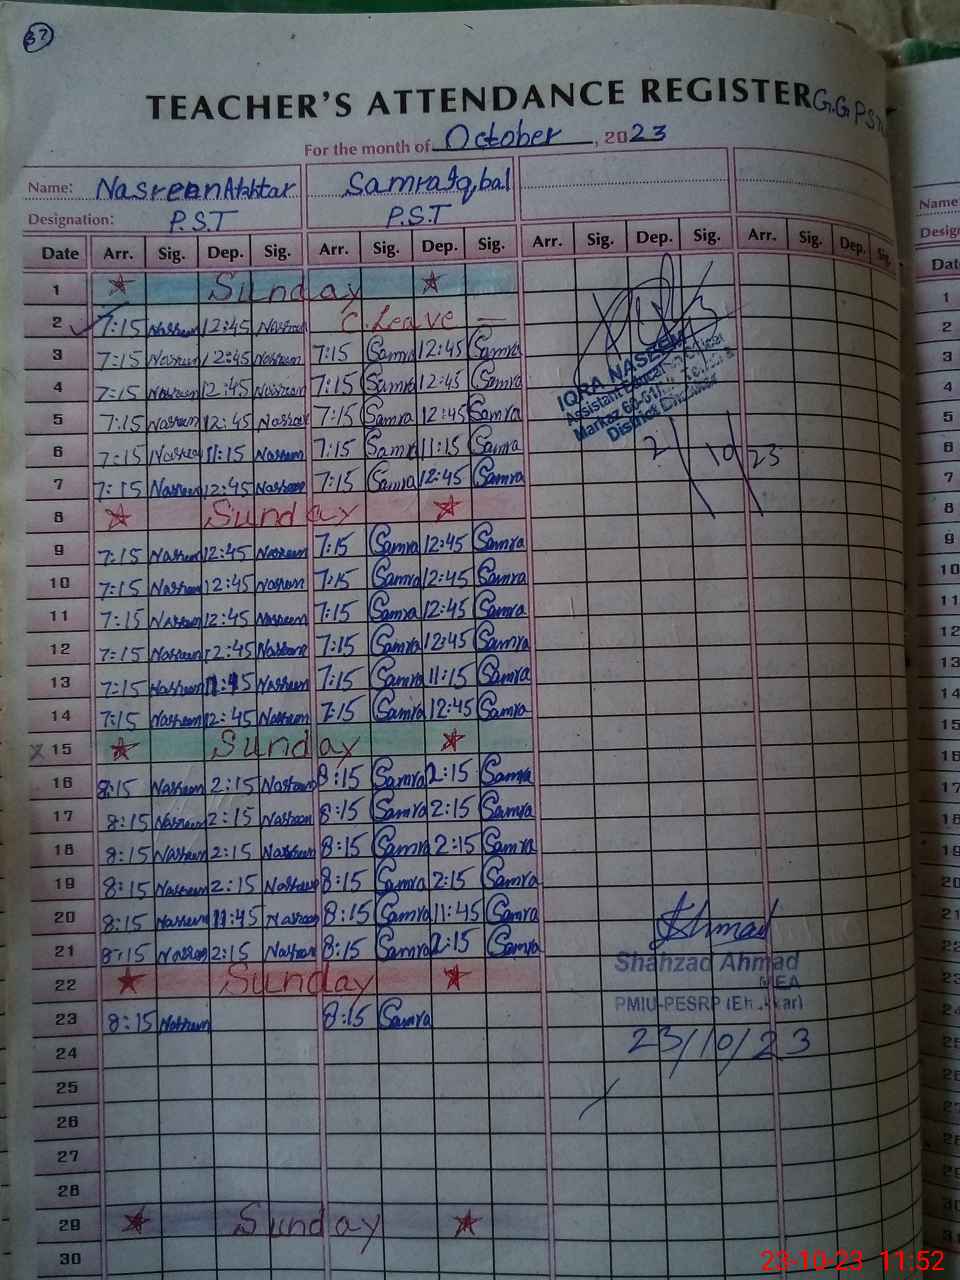 37
TEACHER'S ATTENDANCE REGISTER G.G.P.S
For the month of October, 2023
Name: Nasreen Akhtar Samra Iqbal
Designation: P.S.T P.S.T
Date Arr. Sig. Dep. Sig. Arr. Sig. Dep. Sig. Arr. Sig. Dep. Sig. Arr. Sig. Dep. Sig.
1 Sunday
2 7:15 Nasreen 12:45 Nasreen C.Leave
3 7:15 Nasreen 12:45 Nasreen 7:15 Samra 12:45 Samra
4 7:15 Nasreen 12:45 Nasreen 7:15 Samra 12:45 Samra
5 7:15 Nasreen 12:45 Nasreen 7:15 Samra 12:45 Samra
6 7:15 Nasreen 11:15 Nasreen 7:15 Samra 11:15 Samra
7 7:15 Nasreen 12:45 Nasreen 7:15 Samra 12:45 Samra
IQRA NASEEM
Assistant
Markaz
District
2/10/23
8 Sunday
9 7:15 Nasreen 12:45 Nasreen 7:15 Samra 12:45 Samra
10 7:15 Nasreen 12:45 Nasreen 7:15 Samra 12:45 Samra
11 7:15 Nasreen 12:45 Nasreen 7:15 Samra 12:45 Samra
12 7:15 Nasreen 12:45 Nasreen 7:15 Samra 12:45 Samra
13 7:15 Nasreen Nasreen 7:15 Samra 11:15 Samra
14 7:15 Nasreen 12:45 Nasreen 7:15 Samra 12:45 Samra
x 15 Sunday
16 8:15 Nasreen 2:15 Nasreen 8:15 Samra 2:15 Samra
17 8:15 Nasreen 2:15 Nasreen 8:15 Samra 2:15 Samra
18 8:15 Nasreen 2:15 Nasreen 8:15 Samra 2:15 Samra
19 8:15 Nasreen 2:15 Nasreen 8:15 Samra 2:15 Samra
20 8:15 Nasreen 11:45 Nasreen 8:15 Samra 11:45 Samra
21 8:15 Nasreen 2:15 Nasreen 8:15 Samra 2:15 Samra
22 Sunday
23 8:15 Nasreen 8:15 Samra
Ahmad
Shahzad Ahmad
MEA
PMIU-PESRP
23/10/23
24
25
26
27
28
29 Sunday
30
Name
Date
1
2
3
4
5
6
7
8
9
10
11
12
13
14
15
16
17
18
19
20
21
22
23
24
23-10-23 11:52